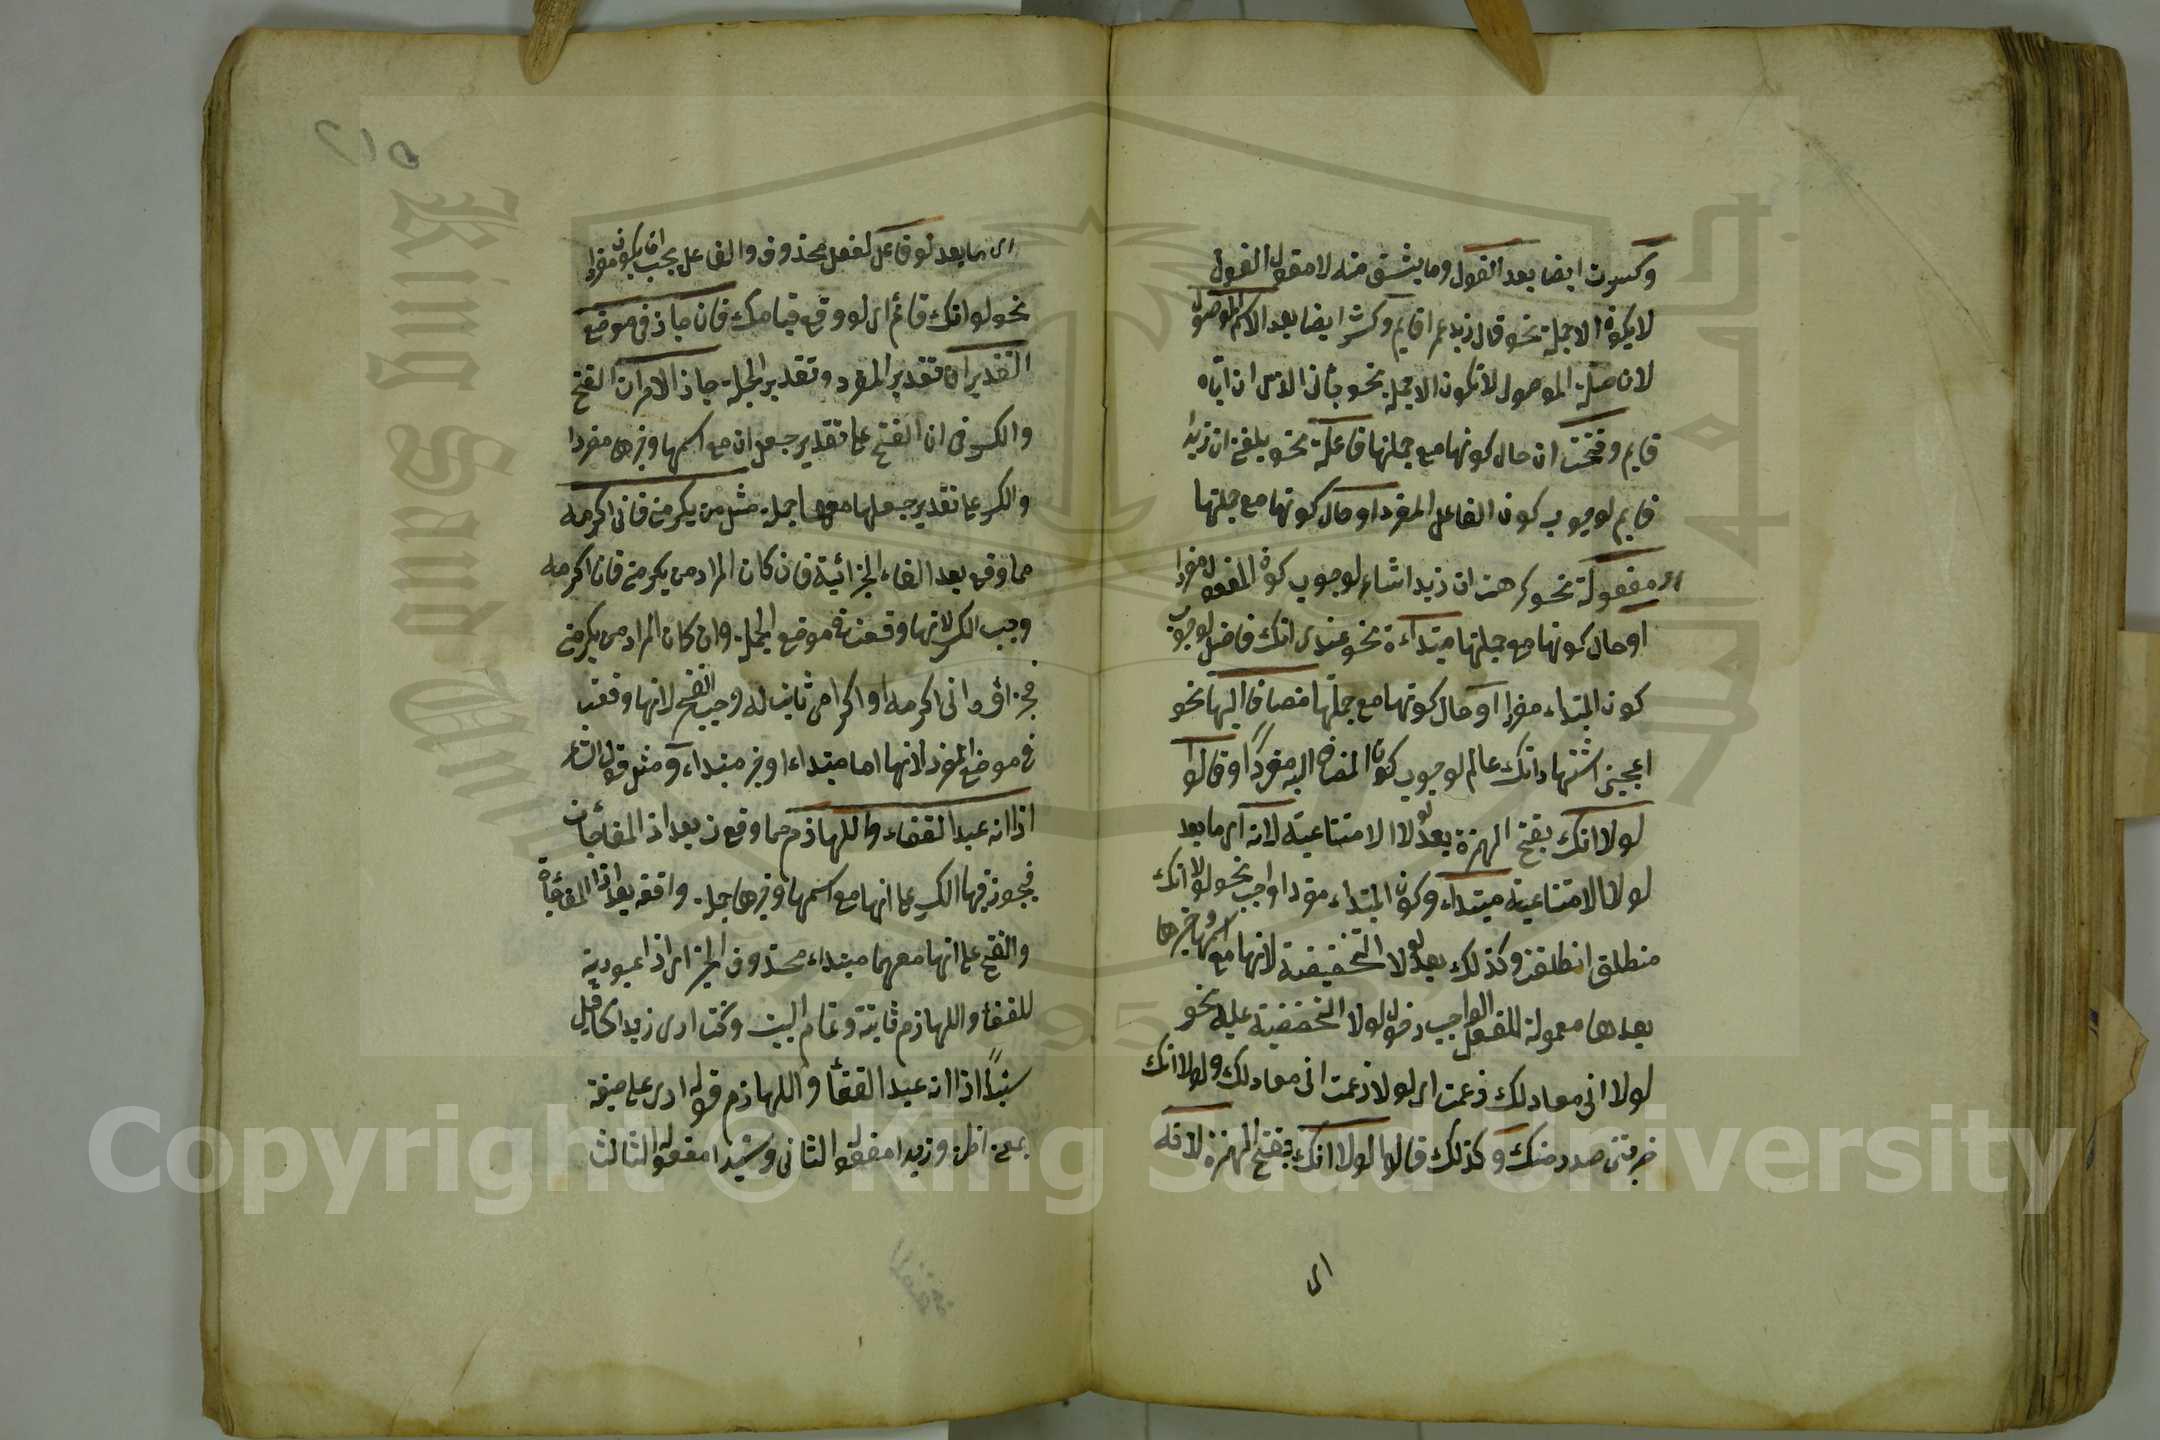 وكسرت ايضا بعد القول وما يشتق منه لا مقول القول
لا يكون الا جملة نحو قال زيد عمرا قايم وكسرت ايضا بعد الاسم الموصول
لان صلة الموصول لا تكون الا جملة نحو جائى الذى ان اباه
قايم وفتحت ان حال كونها مع جملتها فاعلة نحو بلغنى ان زيدا
قايم لوجوب كون الفاعل المفرد او حال كونها مع جملتها
مفعولة نحو كرهت ان زيدا شاعر لوجوب كون المفعول مفردا
او حال كونها مع جملتها مبتداءة نحو عندى انك فاضل لوجوب
كون المبتداء مفردا او حال كونها مع جملتها مضافا اليها نحو
اعجبنى اشتهار انك عالم لوجوب كون المضاف اليه مفردًا وقالوا
لولا انك بفتح الهمزة بعد لولا الامتناعية لانه اى ما بعد
لولا الامتناعية مبتداء وكون المبتداء مفردا واجب نحو لولا انك
منطلق انطلقت وكذلك بعد لولا التحضيضية لانها مع اسمها وخبرها
بعدها معمولة للفعل الواجب دخول لولا التحضيضية عليه نحو
لولا انى معاد لك زعمت اى لولا زعمت انى معاد لك ولولا انك
ضربتنى صدر منك وكذلك قالوا لولا انك بفتح الهمزة لانه
اى
٢١٥
اى ما بعد لو فاعل لفعل محذوف والفاعل يجب ان يكون مفردا
نحو لو انك قائم اى لو وقع قيامك فان جاز فى موضع
التقديران تقدير المفرد وتقدير الجملة جاز الامران الفتح
والكسر فى ان الفتح على تقدير جعل ان مع اسمها وخبرها مفردا
والكسر على تقدير جعلها معهما جملة مثل من يكرمنى فانى اكرمه
مما وقع بعد الفاء الجزائية فان كان المراد من يكرمنى فانا اكرمه
وجب الكسر لانها وقعت فى موضع الجملة وان كان المراد من يكرمنى
فجزاؤه انى اكرمه او اكرامى ثابت له وجب الفتح لانها وقعت
فى موضع المفرد لانها اما مبتداء او خبر مبتداء ومثل قول الشاعر
اذا انه عبد القفاء واللهازم مما وقع ان بعد اذا المفاجات
فيجوز فيها الكسر على انها مع اسمها وخبرها جملة واقعة بعد اذا المفاجاة
والفتح على انها معهما مبتداء محذوف الخبر اى اذا عبودية
للقفا واللهازم ثابتة وتمام البيت وكنت ارى زيدا كما قيل
سيدًا اذا انه عبد القفا واللهازم قوله ارى على صيغة
بمعنى اظن وزيدا مفعوله الثانى وسيدا مفعوله الثالث
King Saud University
جامعة الملك سعود
1957
Copyright © King Saud University